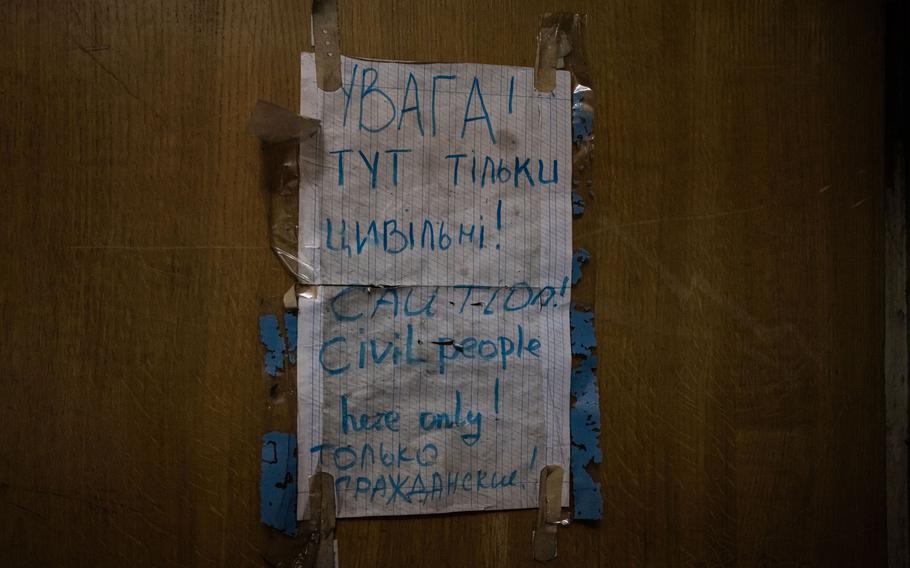 УВАГА!
ТУТ тільки
цивільні!
CAUTION!
Civil people
here only!
ТОЛЬКО
ГРАЖДАНСКИЕ!